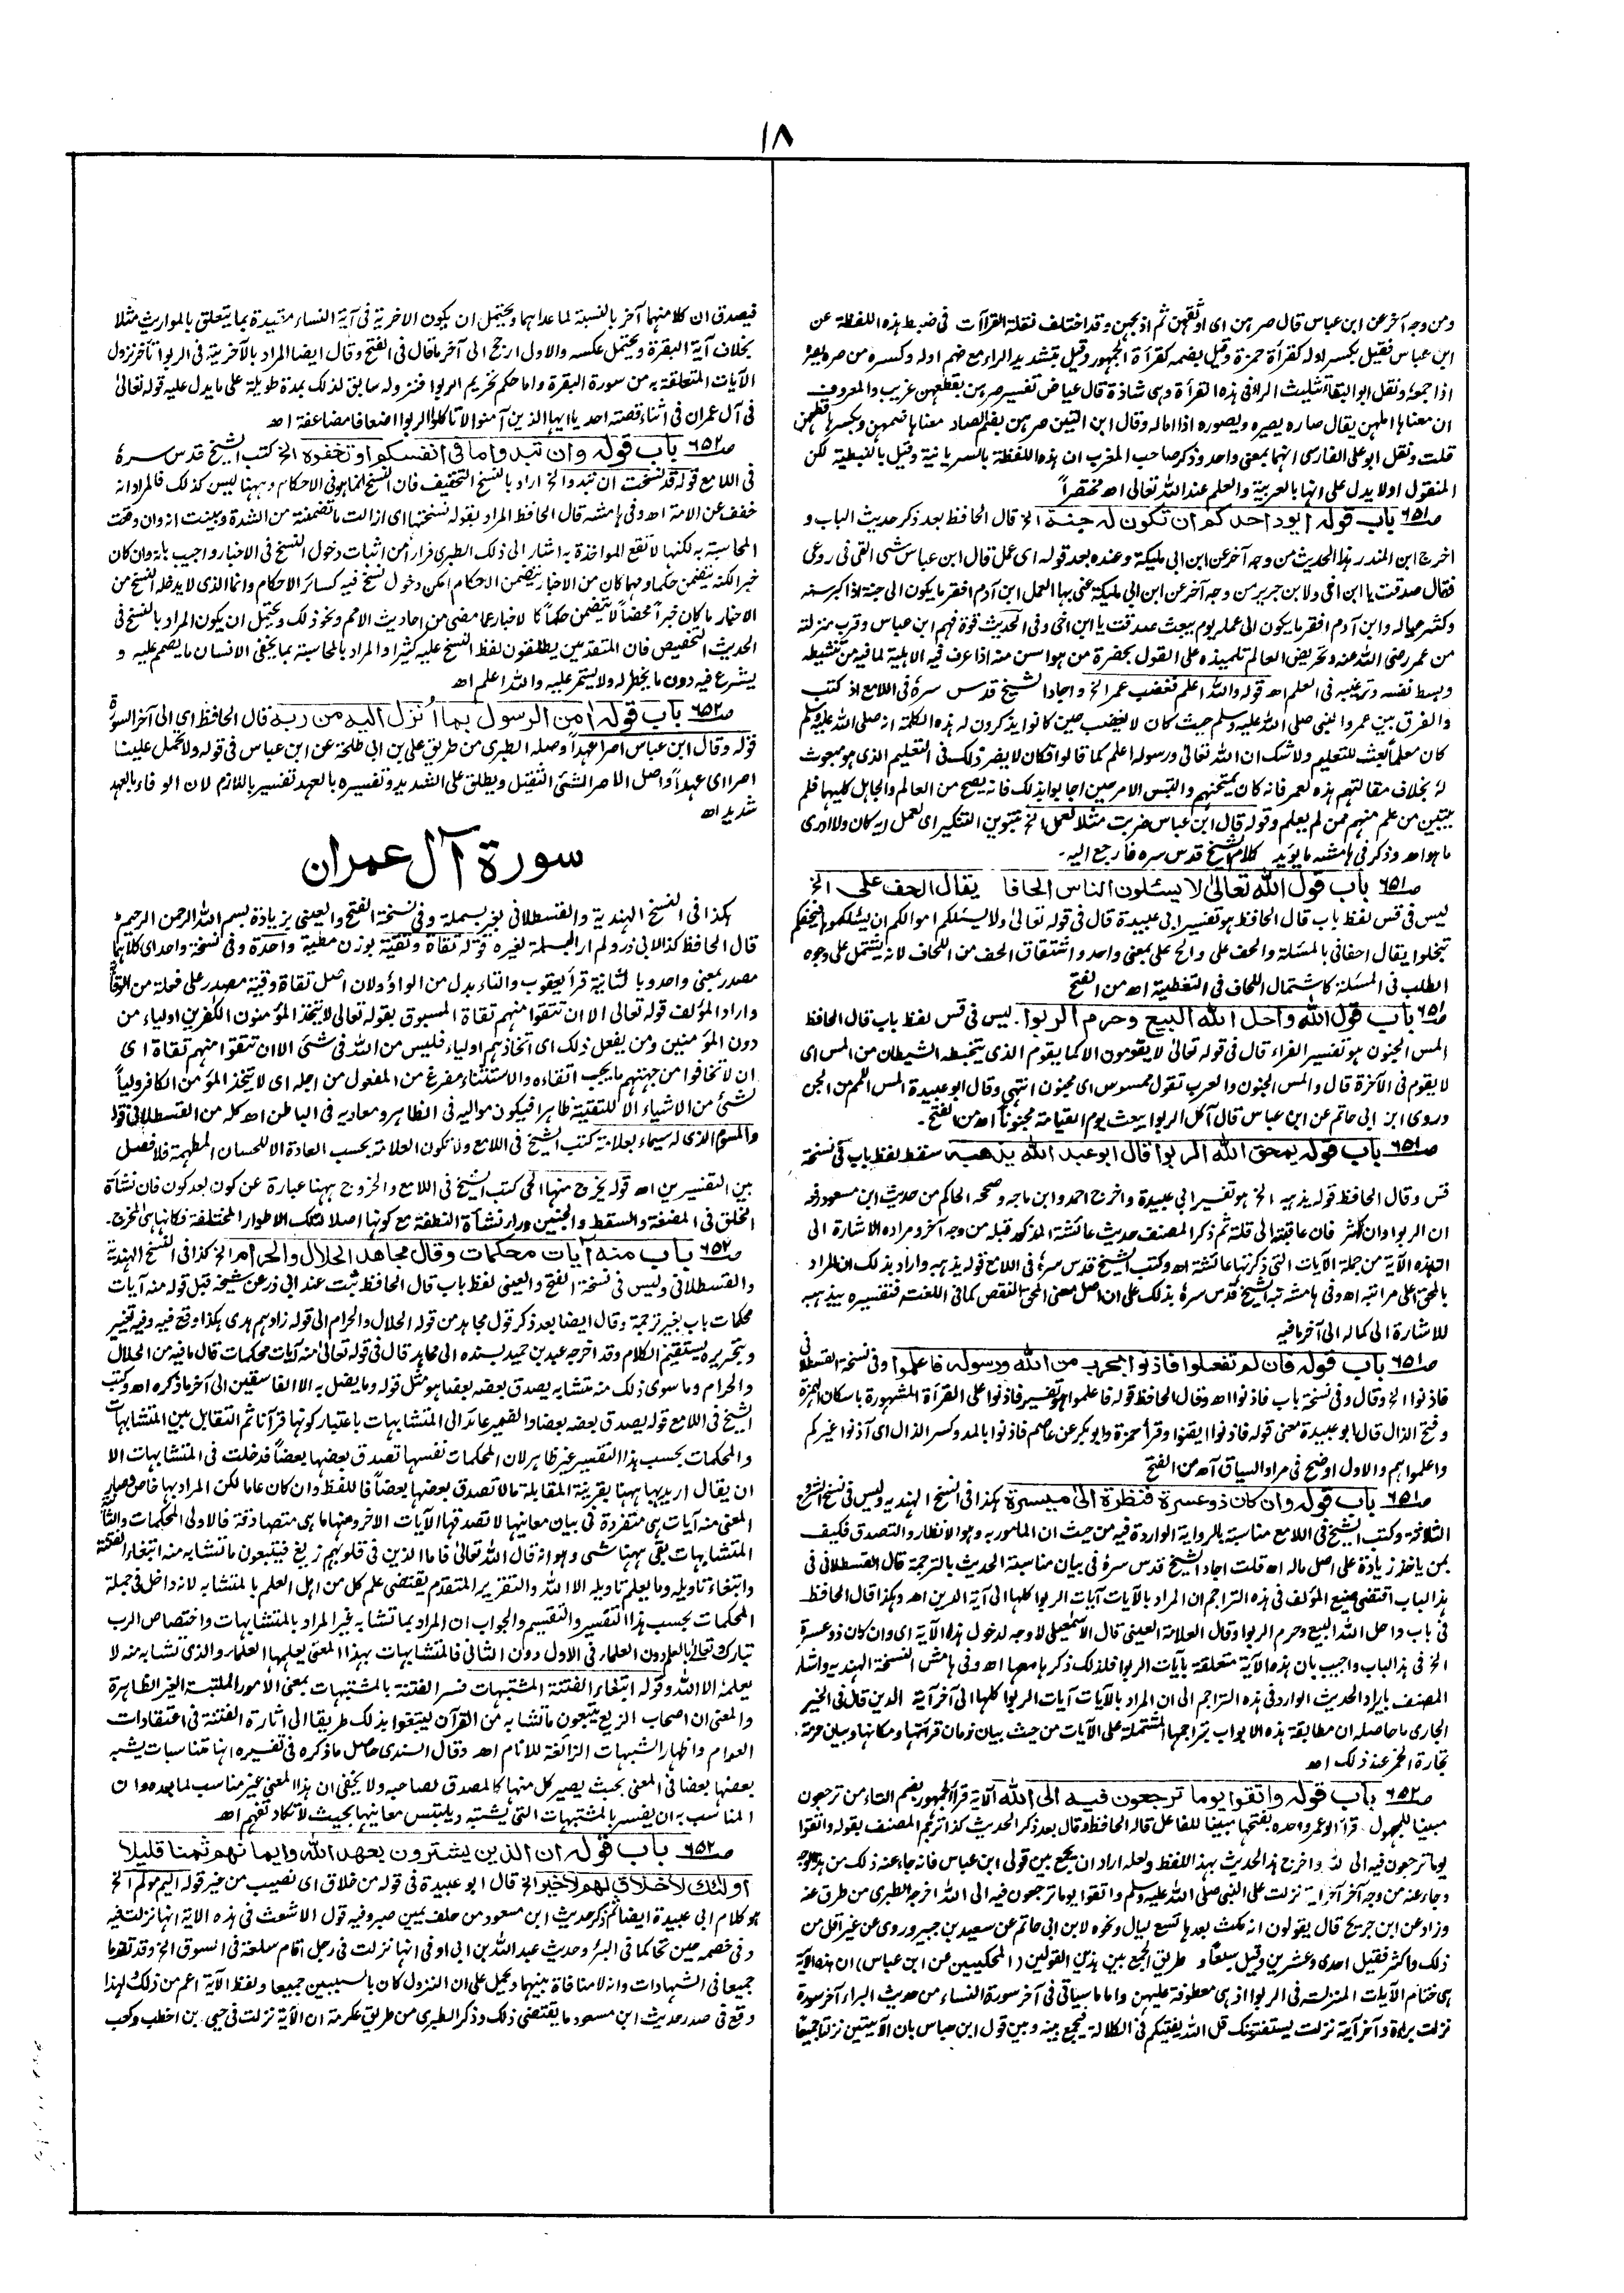 ١٨
ومن وجه آخر عن ابن عباس قال صرهن اى اوثقهن ثم اذبحهن وقد اختلف نقلة القراآت فى ضبط هذه اللفظة عن
ابن عباس فقيل بكسر اوله كقرأة حمزة وقيل بضمه كقرأة الجمهور وقيل بتشديد الراء مع ضم اوله وكسره من صره يصره
اذا جمعه ونقل ابو البقاء تثليث الراء فى هذه القرأة وهى شاذة قال عياض تفسير صرهن بقطعهن غريب والمعروف
ان معناها املهن يقال صاره يصيره ويصوره اذا اماله وقال ابن التين صرهن بضم الصاد معناها ضمهن وبكسرها قطعهن
قلت ونقل ابو على الفارسى انهما بمعنى واحد وذكر صاحب المغرب ان هذه اللفظة بالسريانية وقيل بالنبطية لكن
المنقول اولا يدل على انها بالعربية والعلم عند الله تعالى اھ مختصراً
صـ٦٥١ باب قوله ايود احدكم ان تكون له جنة الخ قال الحافظ بعد ذكر حديث الباب و
اخرج ابن المنذر هذا الحديث من وجه آخر عن ابن ابى مليكة وعنده بعد قوله اى عمل قال ابن عباس شى القى فى روعى
فقال صدقت يا ابن اخى ولابن جرير من وجه آخر عن ابن ابى مليكة عنى بها العمل ابن آدم افقر ما يكون الى جنة اذا كبر سنه
وكثر عياله وابن آدم افقر ما يكون الى عمله يوم يبعث صدقت يا ابن اخى وفى الحديث قوة فهم ابن عباس وقرب منزلته
من عمر رضى الله عنه وتحريض العالم تلميذه على القول بحضرة من هو اسن منه اذا عرف فيه الاهلية لما فيه من تنشيطه
وبسط نفسه وترغيبه فى العلم اھ قوله والله اعلم فغضب عمر الخ واجاد الشيخ قدس سره فى اللامع اذ كتب
والفرق بين عمر والنبى صلى الله عليه وسلم حيث كان لا يغضب حين كانوا يذكرون له هذه الكلمة انه صلى الله عليه وسلم
كان معلما بعث للتعليم ولا شك ان الله تعالى ورسوله اعلم كما قالوا فكان لا يضر ذلك فى التعليم الذى هو مبعوث
له بخلاف مقالتهم هذه لعمر فانه كان يمتحنهم والتبس الامر حين اجابوا بذلك فانه يصح من العالم والجاهل كليهما فلم
يتبين من علم منهم ممن لم يعلم وقوله قال ابن عباس ضربت مثلا لعمل الخ بتنوين التنكير اى لعمل ايه كان ولا ادرى
ما هو اھ وذكر فى هامشه ما يؤيد كلام الشيخ قدس سره فارجع اليه۔
صـ٦٥١ باب قول الله تعالى لا يسئلون الناس الحافا يقال الحف على الخ
ليس فى قس لفظ باب قال الحافظ هو تفسير ابى عبيدة قال فى قوله تعالى ولا يسئلكم اموالكم ان يسئلكموها فيحفكم
تبخلوا يقال احفانى بالمسئلة والحف على والح على بمعنى واحد واشتقاق الحف من اللحاف لانه يشتمل على وجوه
الطلب فى المسئلة كاشتمال اللحاف فى التغطية اھ من الفتح
صـ٦٥١ باب قول الله واحل الله البيع وحرم الربوا۔ ليس فى قس لفظ باب قال الحافظ
المس الجنون هو تفسير الفراء قال فى قوله تعالى لا يقومون الا كما يقوم الذى يتخبطه الشيطان من المس اى
لا يقوم فى الآخرة قال والمس الجنون والعرب تقول ممسوس اى مجنون انتهى وقال ابو عبيدة المس اللمم من الجن
وروى ابن ابى حاتم عن ابن عباس قال آكل الربوا يبعث يوم القيامة مجنونا اھ من الفتح۔
صـ٦٥١ باب قوله يمحق الله الربوا قال ابو عبد الله يذهبه سقط لفظ باب فى نسخة
قس وقال الحافظ قوله يذهبه الخ هو تفسير ابى عبيدة واخرج احمد وابن ماجه وصححه الحاكم من حديث ابن مسعود رفعه
ان الربوا وان كثر فان عاقبته الى قلة ثم ذكر المصنف حديث عائشة المذكور قبله من وجه آخر ومراده الاشارة الى
ان هذه الآية من جملة الآيات التى ذكرتها عائشة اھ وكتب الشيخ قدس سره فى اللامع قوله يذهبه واراد بذلك ان المراد
بالمحق اعلى مراتبه اھ وفى هامشه نبه الشيخ قدس سره بذلك على ان اصل معنى المحق النقص كما فى اللغة فتفسيره بيذهبه
للاشارة الى كماله الى آخر ما فيه
صـ٦٥١ باب قوله فان لم تفعلوا فاذنوا بحرب من الله ورسوله فاعلموا وفى نسخة القسطلانى
فاذنوا الخ وقال وفى نسخة باب فاذنوا اھ وقال الحافظ قوله فاعلموا هو تفسير فاذنوا على القرأة المشهورة باسكان الهمزة
وفتح الذال قال ابو عبيدة معنى قوله فاذنوا ايقنوا وقرأ حمزة وابو بكر عن عاصم فاذنوا بالمد وكسر الذال اى آذنوا غيركم
واعلموا هم والاول اوضح فى مراد السياق اھ من الفتح
صـ٦٥١ باب قوله وان كان ذو عسرة فنظرة الى ميسرة هكذا فى النسخ الهنديه وليس فى نسخ الشروح
الثلاثة وكتب الشيخ فى اللامع مناسبة بالرواية الواردة فيه من حيث ان المامور به وهو الانظار والتصدق فكيف
بمن ياخذ زيادة على اصل ماله اھ قلت اجاد الشيخ قدس سره فى بيان مناسبة الحديث بالترجمة قال القسطلانى فى
هذا الباب اقتضى صنيع المؤلف فى هذه التراجم ان المراد بالآيات آيات الربوا كلها الى آية الدين اھ وهكذا قال الحافظ
فى باب واحل الله البيع وحرم الربوا وقال العلامة العينى قال الاسمعيلى لا وجه لدخول هذه الآية اى وان كان ذو عسرة
الخ فى هذ الباب واجيب بان هذه الآية متعلقة بآيات الربوا فلذلك ذكرها معها اھ وفى هامش النسخة الهنديه واشار
المصنف بايراد الحديث الوارد فى هذه التراجم الى ان المراد بالآيات آيات الربوا كلها الى آخر آية الدين قال فى الخير
الجارى ما حاصله ان مطابقة هذه الابواب بتراجمها المشتملة على الآيات من حيث بيان زمان قرأتها ومكانها وبيان حرمة۔
تجارة الخمر عند ذلك اھ
صـ٦٥٢ باب قوله واتقوا يوما ترجعون فيه الى الله الآية قرأ الجمهور بضم التاء من ترجعون
مبينا للمجهول۔ قرأ ابو عمرو وحده بفتحها مبينا للفاعل قاله الحافظ وقال بعد ذكر الحديث كذا ترجم المصنف بقوله واتقوا
يوما ترجعون فيه الى لله واخرج هذ الحديث بهذا اللفظ ولعله اراد ان يجمع بين قولى ابن عباس فانه جاء عنه ذلك من هذالوجه
وجاء عنه من وجه آخر آخر آية نزلت على النبى صلى الله عليه وسلم واتقوا يوما ترجعون فيه الى الله اخرجه الطبرى من طرق عنه
وزاد عن ابن جريج قال يقولون انه مكث بعدها تسع ليال ونحوه لابن ابى حاتم عن سعيد بن جبير وروى عن غير اقل من
ذلك واكثر فقيل احدى وعشرين وقيل سبعا و طريق الجمع بين هذين القولين (المحكيين عن ابن عباس) ان هذه الآية
هى ختام الآيات المنزلت فى الربوا اذ هى معطوفة عليهن واما ما سياتى فى آخر سورة النساء من حديث البراء آخر سورة
نزلت براءة وآخر آية نزلت يستفتونك قل الله يفتيكم فى الكلالة فيجمع بينه وبين قول ابن عباس بان الآيتين نزلتا جميعا
فيصدق ان كلا منهما آخر بالنسبة لما عداهما ويحتمل ان يكون الاخرية فى آية النساء مقيدة بما يتعلق بالمواريث مثلا
بخلاف آية البقرة ويحتمل عكسه والاول ارجح الى آخر ما قال فى الفتح وقال ايضا المراد بالآخرية فى الربوا تأخر نزول
الآيات المتعلقة به من سورة البقرة واما حكم تحريم الربوا فنزوله سابق لذلك بمدة طويلة على ما يدل عليه قوله تعالى
فى آل عمران فى اثناء قصته احد يا ايها الذين آمنوا لا تاكلوا الربوا اضعافا مضاعفة اھ
صـ٦٥٢ باب قوله وان تبدوا ما فى انفسكم او تخفوه الخ كتب الشيخ قدس سره
فى اللامع قوله قد نسخت ان تبدوا الخ اراد بالنسخ التخفيف فان النسخ انما هو فى الاحكام وههنا ليس كذلك فالمراد انه
خفف عن الامة اھ وفى هامشه قال الحافظ المراد بقوله نسختها اى ازالت ما تضمنته من الشدة وبينت انه وان وقعت
المحاسبة به لكنها لا تقع المواخذة به اشار الى ذلك الطبرى فرارا من اثبات دخول النسخ فى الاخبار واجيب بانه وان كان
خبرا لكنه يتضمن حكما ومهما كان من الاخبار يتضمن الاحكام امكن دخول نسخ فيه كسائر الاحكام وانما الذى لا يدخله النسخ من
الاخبار ما كان خبرا محضا لا يتضمن حكما كا لاخبار عما مضى من احاديث الامم ونحو ذلك ويحتمل ان يكون المراد بالنسخ فى
الحديث التخصيص فان المتقدمين يطلقون لفظ النسخ عليه كثيرا والمراد بالمحاسبة بما يخفى الانسان ما يصمم عليه و
يشرع فيه دون ما يخطر له ولا يستمر عليه والله اعلم اھ
صـ٦٥٢ باب قوله امن الرسول بما انزل اليه من ربه قال الحافظ اى الى آخر السورة
قوله وقال ابن عباس اصرا عهداً وصله الطبرى من طريق على بن ابى طلحة عن ابن عباس فى قوله ولا تحمل علينا
اصرا اى عهداً واصل الاصر الشئى الثقيل ويطلق على الشديد وتفسيره بالعهد تفسير باللازم لان الوفاء بالعهد
شديد اھ
سورة آل عمران
هكذا فى النسخ الهندية والقسطلانى بغير بسملة وفى نسخة الفتح والعينى بزيادة بسم الله الرحمن الرحيم
قال الحافظ كذا لابى ذر ولم ار البسملة لغيره قوله تقاة وتقية بوزن مطية واحدة وفى نسخة واحد اى كلاهما
مصدر بمعنى واحد وبالثانية قرأ يعقوب والتاء بدل من الواو لان اصل تقاة وقية مصدر على فعلة من الوقاية
واراد المؤلف قوله تعالى الا ان تتقوا منهم تقاة المسبوق بقوله تعالى لا يتخذ المؤمنون الكفرين اولياء من
دون المؤمنين ومن يفعل ذلك اى اتخاذهم اولياء فليس من الله فى شئى الا ان تتقوا منهم تقاة اى
ان لا تخافوا من جهتهم ما يجب اتقاءه والاستثناء مفرغ من المفعول من اجله اى لا يتخذ المؤمن الكافر ولياً
لشئى من الاشياء الا للتقية ظاهرا فيكون مواليه فى الظاهر ومعاديه فى الباطن اھ كله من القسطلانى قوله
والمسوم الذى له سيماء بعلامة كتب الشيخ فى اللامع ولا تكون العلامة بحسب العادة الا للحسان المطهمة فلا فصل
بين التفسيرين اھ قوله يخرج منها الحى كتب الشيخ فى اللامع والخروج ههنا عبارة عن كون بعد كون فان نشأة
الخلق فى المضغة والسقط والجنين وراء نشأة النطفة مع كونها اصلا لتلك الاطوار المختلفة فكانها هى المخرج۔
صـ٦٥٢ باب منه آيات محكمات وقال مجاهد الحلال والحرام الخ كذا فى النسخ الهندية
والقسطلانى وليس فى نسخة الفتح والعينى لفظ باب قال الحافظ ثبت عند ابى ذر عن شيخه قبل قوله منه آيات
محكمات باب بغير ترجمة وقال ايضا بعد ذكر قول مجاهد من قوله الحلال والحرام الى قوله زادهم هدى هكذا وقع فيه وفيه تغيير
وبتحريره يستقيم الكلام وقد اخرجه عبد بن حميد بسنده الى مجاهد قال فى قوله تعالى منه آيات محكمات قال ما فيه من الحلال
والحرام وما سوى ذلك منه متشابه يصدق بعضه بعضا هو مثل قوله وما يضل به الا الفاسقين الى آخر ما ذكره اھ وكتب
الشيخ فى اللامع قوله يصدق بعضه بعضا والضمير عائد الى المتشابهات باعتبار كونها قرآنا ثم التقابل بين المتشابهات
والمحكمات بحسب هذا التفسير غير ظاهر لان المحكمات نفسها تصدق بعضها بعضاً فدخلت فى المتشابهات الا
ان يقال اريد بها ههنا بقرينة المقابلة ما لا تصدق بعضها بعضاً فاللفظ وان كان عاما لكن المراد بها خاص فصار
المعنى منه آيات هى متفردة فى بيان معانيها لا تصدقها الآيات الاخر ومنها ما هى متصادقة فالاولى المحكمات والثانية
المتشابهات بقى ههنا شى وهو انه قال الله تعالى فاما الذين فى قلوبهم زيغ فيتبعون ما تشابه منه ابتغاء الفتنة
وابتغاء تاويله وما يعلم تاويله الا الله والتقرير المتقدم يقتضى علم كل من اهل العلم بالمتشابه لانه داخل فى جملة
المحكمات بحسب هذا التفسير والتقسيم والجواب ان المراد بما تشابه غير المراد بالمتشابهات واختصاص الرب
تبارك وتعالى بالعلم دون العلماء فى الاول دون الثانى فالمتشابهات بهذا المعنى يعلمها العلماء والذى تشابه منه لا
يعلمه الا الله وقوله ابتغاء الفتنة المشتبهات فسر الفتنة بالمشتبهات بمعنى الامور الملتبسة الغير الظاهرة
والمعنى ان اصحاب الزيغ يتبعون ما تشابه من القرآن ليبتغوا بذلك طريقا الى اثارة الفتنة فى اعتقادات
العوام واظهار الشبهات الزائغة للانام اھ وقال السندى حاصل ما ذكره فى تفسيره انها متناسبات يشبه
بعضها بعضا فى المعنى بحيث يصير كل منها كالمصدق لصاحبه ولا يخفى ان هذا المعنى غير مناسب لما بعده وان
المناسب به ان يفسر بالمشتبهات التى يشتبه ويلتبس معانيها بحيث لا تكاد تفهم اھ
صـ٦٥٢ باب قوله ان الذين يشترون بعهد الله وايمانهم ثمنا قليلا
أولئك لا خلاق لهم لا خير الخ قال ابو عبيدة فى قوله من خلاق اى نصيب من خير قوله اليم مولم الخ
هو كلام ابى عبيدة ايضا ثم ذكر حديث ابن مسعود من حلف يمين صبر وفيه قول الاشعث فى هذه الاية انها نزلت فيه
وفى خصمه حين تحاكما فى البئر وحديث عبد الله بن ابى اوفى انها نزلت فى رجل اقام سلعة فى السوق الخ وقد تقدما
جميعا فى الشهادات وانه لا منافاة بينهما ويحمل على ان النزول كان بالسببين جميعا ولفظ الآية اعم من ذلك ولهذا
وقع فى صدر حديث ابن مسعود ما يقتضى ذلك وذكر الطبرى من طريق عكرمة ان الآية نزلت فى حيى بن اخطب وكعب